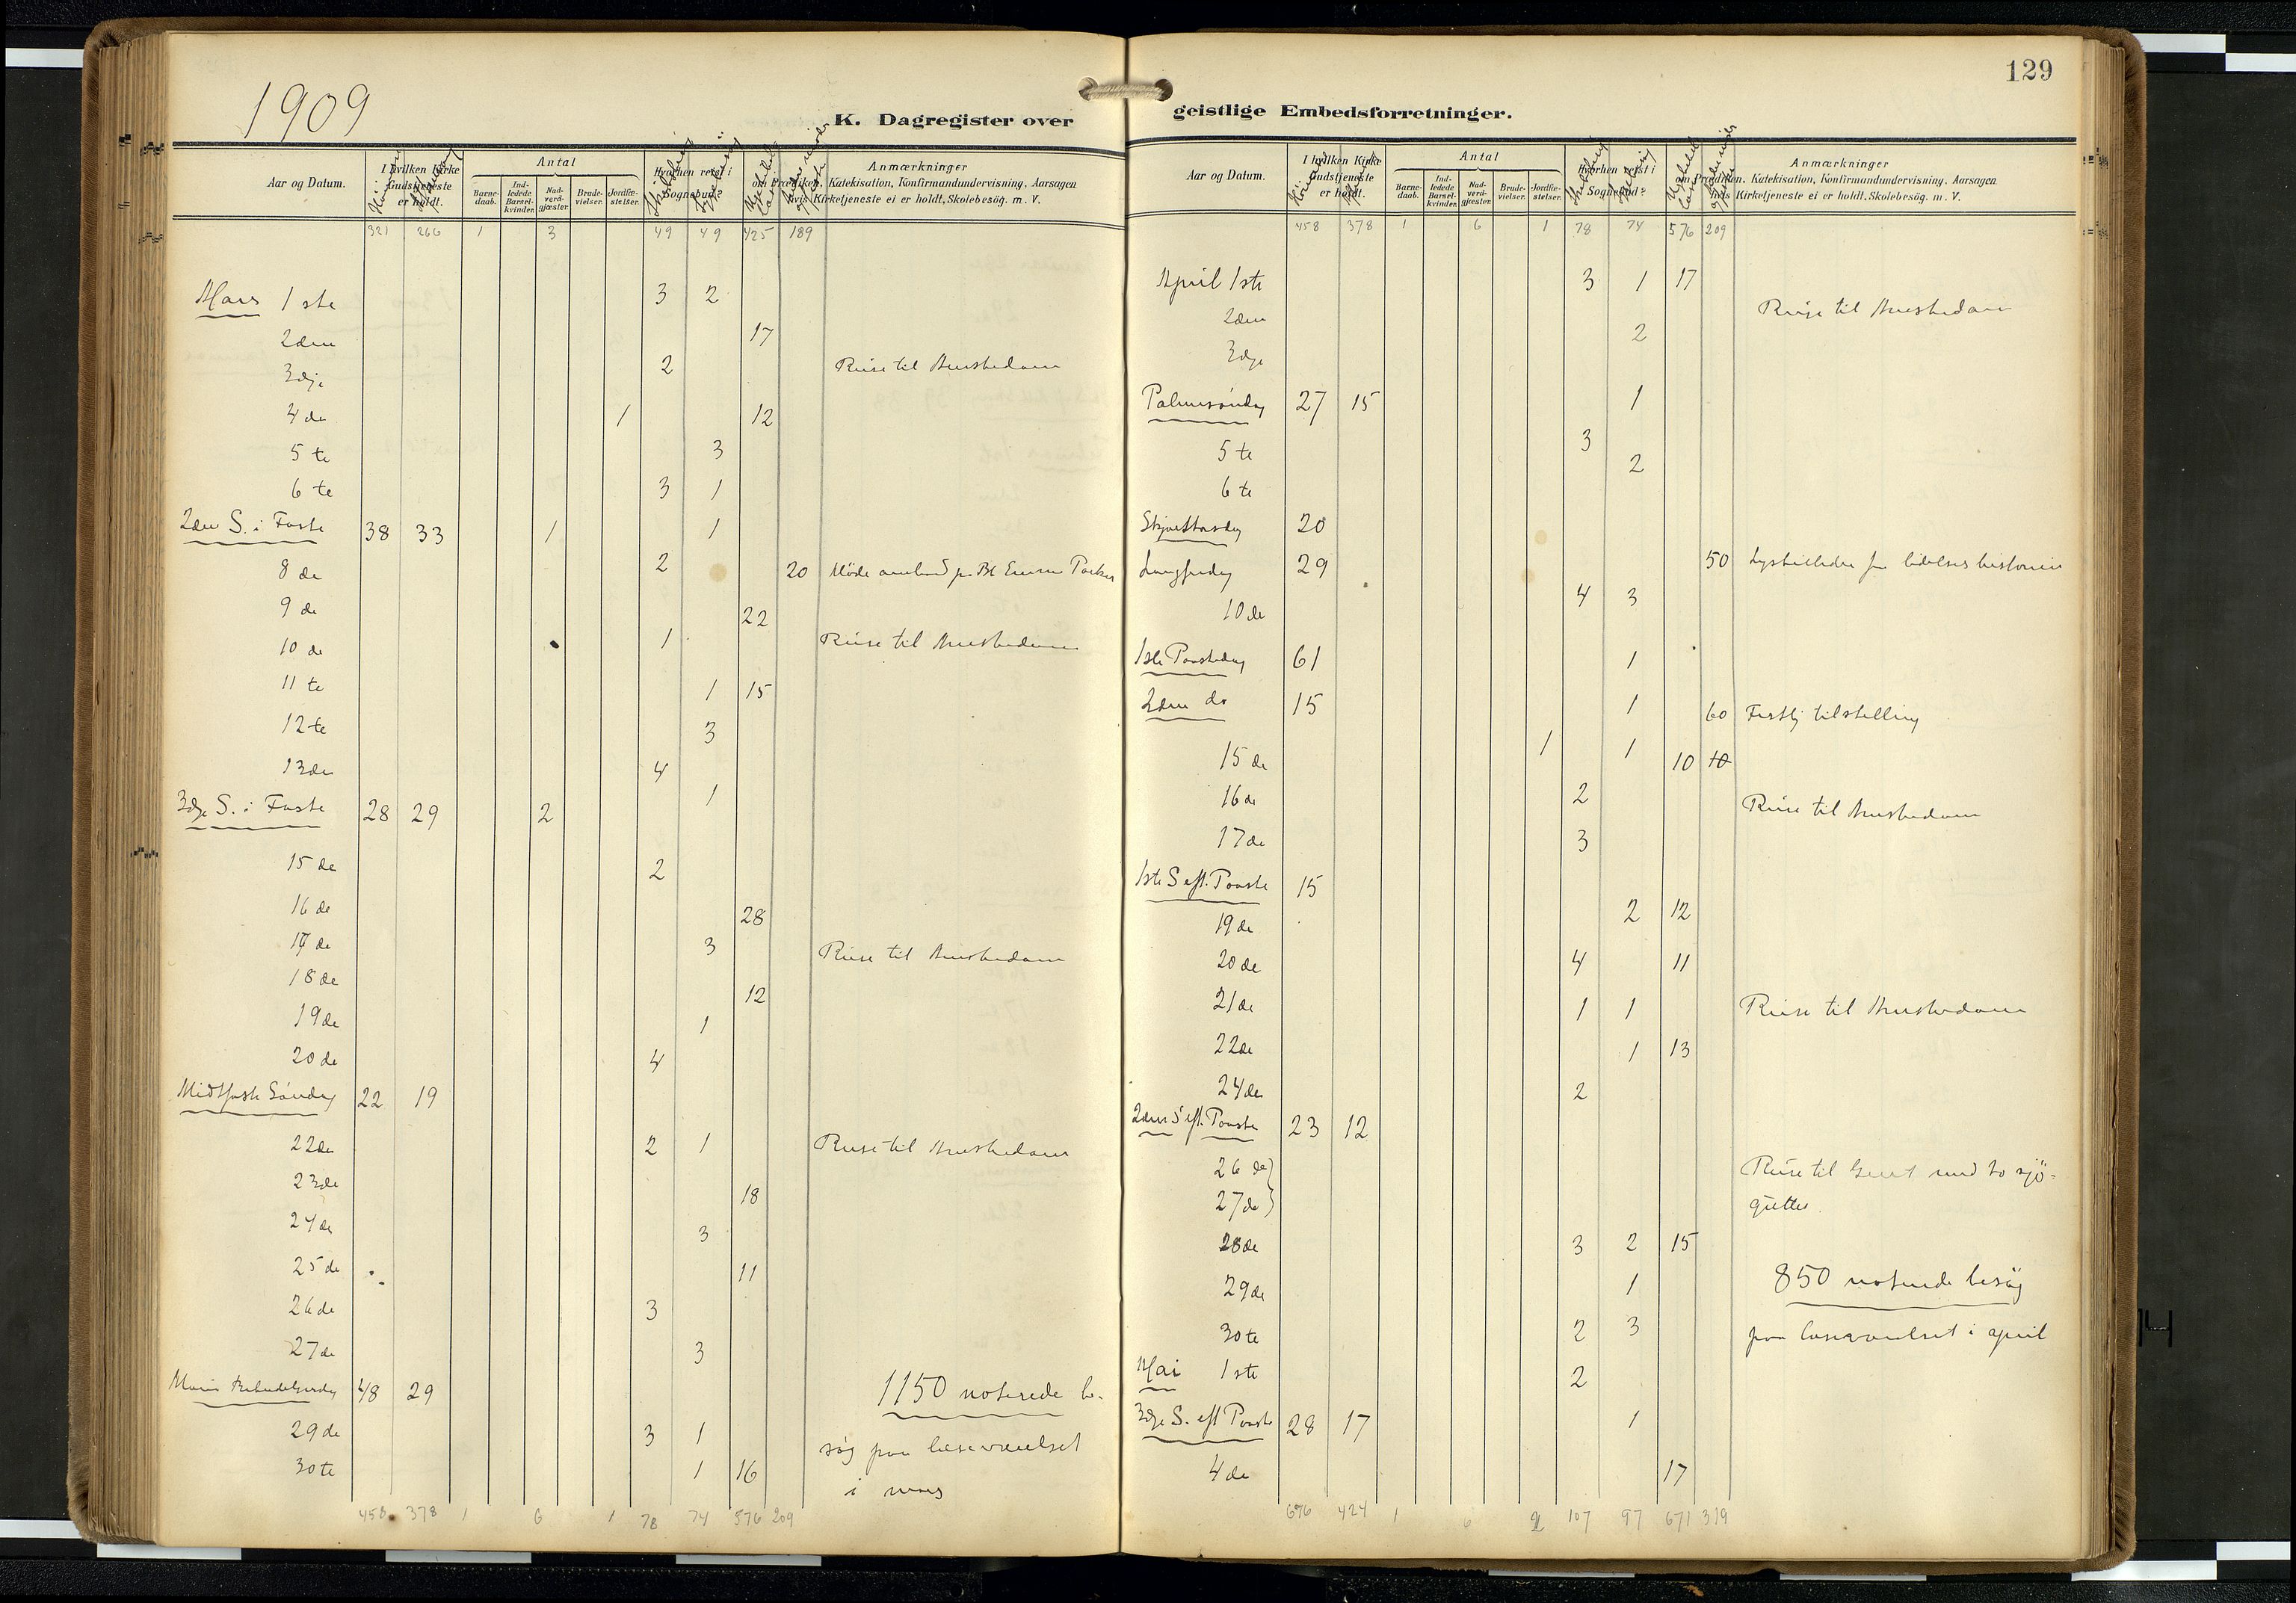 1909
K. Dagregister over
Aar og Datum.
I hvilken Kirke Gudstjeneste er holdt.
Antal
Barne-daab.
Ind-ledede Barsel-kvinder.
Nad-verd-gjæster.
Brude-vielser.
Jordfæ-stelser.
Hvorhen reist i Sognebud?
Anmærkninger
om Prædiken, Katekisation, Konfirmandundervisning, Aarsagen
hvis Kirketjeneste ei er holdt, Skolebesög. m. V.
321 266 1 3 49 49 425 189
Mars 1ste 3 2
2den 17
3dje 2 Reise til Amsterdam
4de 1 12
5te 3
6te 3 1
2den S. i Faste 38 33 1 1
8de 2 20 Möde ombord paa Bk Emma Parker
9de 22
10de 1 Reise til Amsterdam
11te 1 15
12te 3
13de 4
3dje S. i Faste 28 29 2 1
15de 2
16de 28
17de 3 Reise til Amsterdam
18de 12
19de 1
20de 4
Midtfaste Söndag 22 19
22de 2 1 Reise til Amsterdam
23de 18
24de 3
25de 11
26de 3
27de 3
Marie Bebudelsesdag 48 29 1150 noterede be-
29de 3 1 søg paa læseværelset
30te 1 16 i mars
458 378 1 6 1 78 74 576 209
129
geistlige Embedsforretninger.
Aar og Datum.
I hvilken Kirke Gudstjeneste er holdt.
Antal
Barne-daab.
Ind-ledede Barsel-kvinder.
Nad-verd-gjæster.
Brude-vielser.
Jordfæ-stelser.
Hvorhen reist i Sognebud?
Anmærkninger
om Prædiken, Katekisation, Konfirmandundervisning, Aarsagen
hvis Kirketjeneste ei er holdt, Skolebesög. m. V.
458 378 1 6 1 78 74 576 209
April 1ste 3 1 17
2den 2 Reise til Amsterdam
3dje
Palmesöndag 27 15 1
5te 3 2
6te
Skjærtorsdag 20
Langfredag 29 50 Lysbilleder fra lidelseshistorien
10de 4 3
1ste Paaskedag 61 1
2den do 15 1 60 Festlig tilstelling
15de 1 1 10 10
16de 2 Reise til Amsterdam
17de 3
1ste S. eft. Paaske 15
19de 2 12
20de 4 11
21de 1 1 Reise til Amsterdam
22de 1 13
24de 2
2den S. eft. Paaske 23 12
26de Reise til Gent med to sjö-
27de gutter.
28de 3 2 15
29de 1 850 noterede besög
30te 2 3 paa læseværelset i april
Mai 1ste 2
3dje S. eft Paaske 28 17 1
4de 17
676 424 1 6 2 107 97 671 319